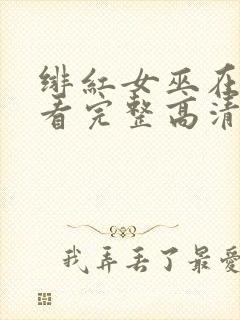 绯红女巫在
看完整高清
我弄丢了最爱